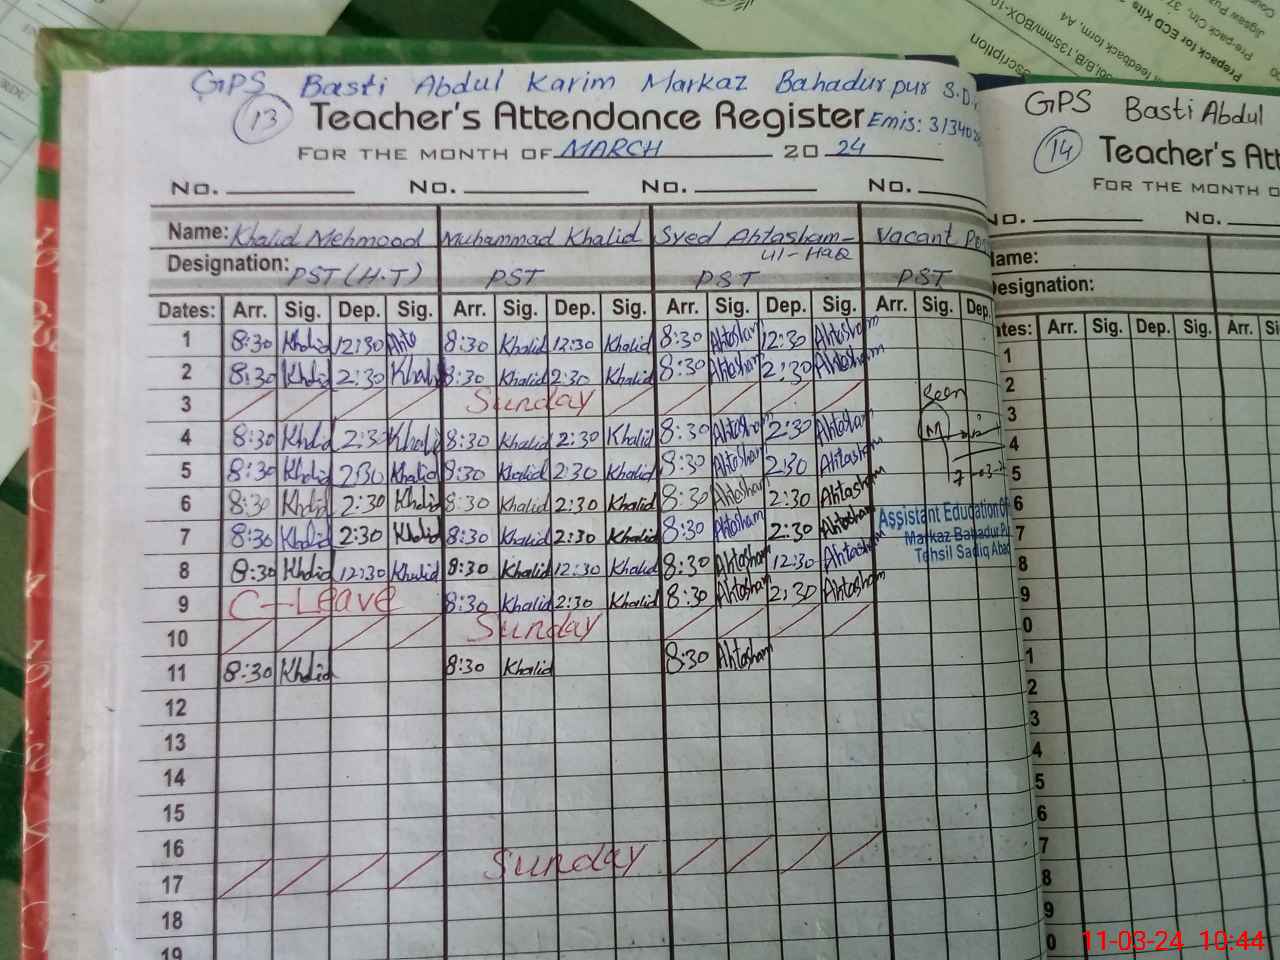 GPS Basti Abdul Karim Markaz Bahadurpur S.D.
13 Teacher's Attendance Register Emis: 31340
FOR THE MONTH OF MARCH 20 24
No. No. No. No.
Name: Khalid Mehmood Muhammad Khalid Syed Ahtasham-ul-Haq Vacant
Designation: PST (H.T) PST PST PST
Dates: Arr. Sig. Dep. Sig. Arr. Sig. Dep. Sig. Arr. Sig. Dep. Sig. Arr. Sig. Dep.
1 8:30 Khalid 12:30 8:30 Khalid 12:30 Khalid 8:30 Ahtasham 12:30 Ahtasham
2 8:30 Khalid 2:30 Khalid 8:30 Khalid 2:30 Khalid 8:30 Ahtasham 2:30 Ahtasham
3 Sunday
4 8:30 Khalid 2:30 Khalid 8:30 Khalid 2:30 Khalid 8:30 Ahtasham 2:30 Ahtasham
5 8:30 Khalid 2:30 Khalid 8:30 Khalid 2:30 Khalid 8:30 Ahtasham 2:30 Ahtasham
6 8:30 Khalid 2:30 Khalid 8:30 Khalid 2:30 Khalid 8:30 Ahtasham 2:30 Ahtasham
7 8:30 Khalid 2:30 Khalid 8:30 Khalid 2:30 Khalid 8:30 Ahtasham 2:30 Ahtasham
8 8:30 Khalid 12:30 Khalid 8:30 Khalid 12:30 Khalid 8:30 Ahtasham 12:30 Ahtasham
9 C-Leave 8:30 Khalid 2:30 Khalid 8:30 Ahtasham 2:30 Ahtasham
10 Sunday
11 8:30 Khalid 8:30 Khalid 8:30 Ahtasham
12
13
14
15
16
17 Sunday
18
19
Seen
Assistant Education
Markaz Bahadur
Tehsil Sadiq Abad
GPS Basti Abdul
14 Teacher's
FOR THE MONTH
No. No.
Name:
Designation:
Dates: Arr. Sig. Dep. Sig. Arr.
1
2
3
4
5
6
7
8
9
0
1
2
3
4
5
6
7
8
9
0
Prepack for ECD Kits
feedback form, A4
11-03-24 10:44